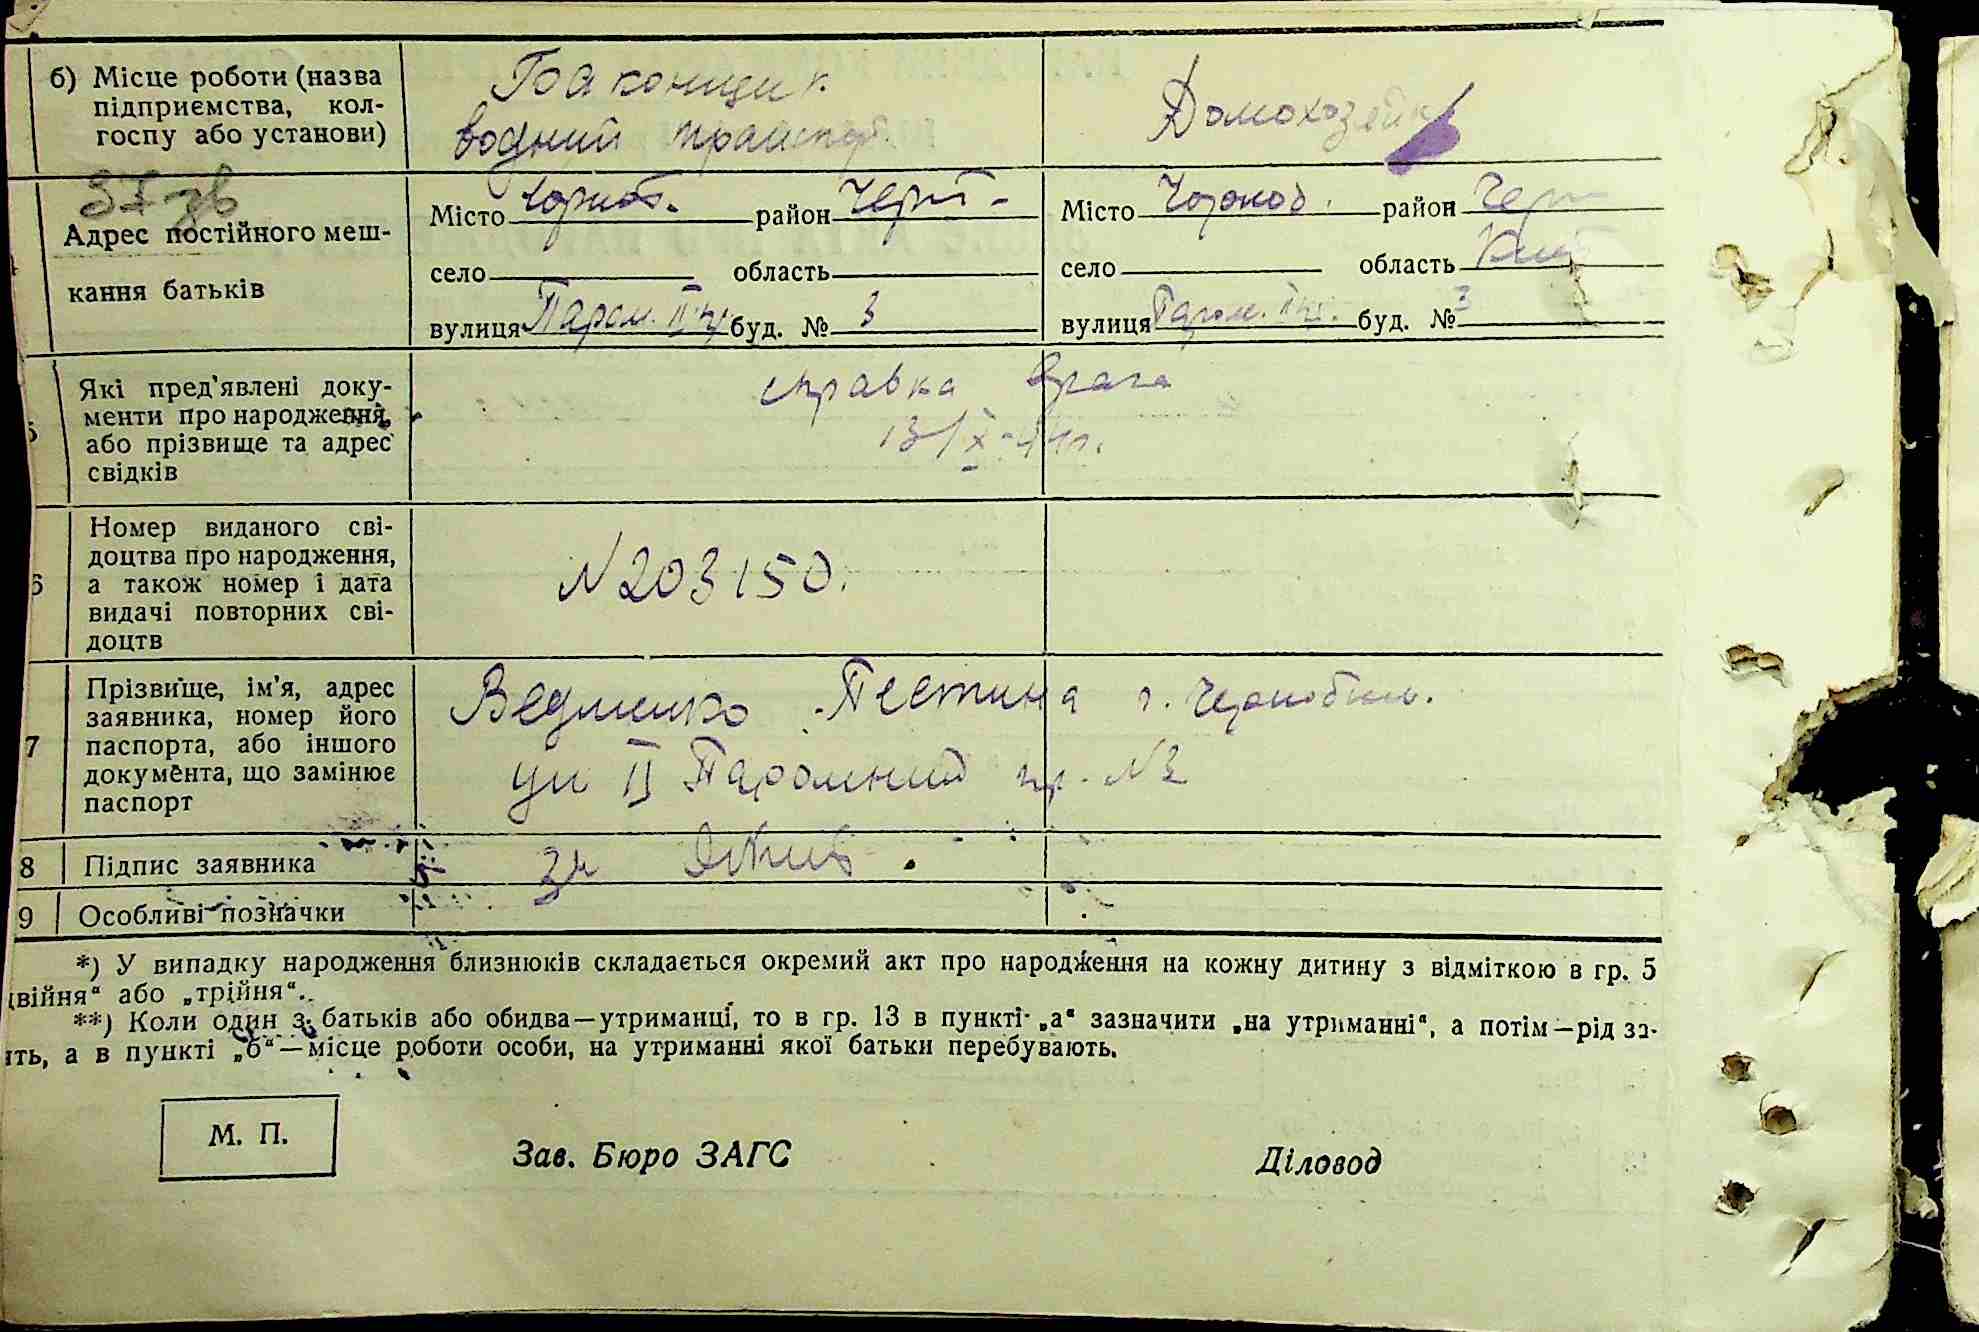 б) Місце роботи (назва
підприємства, кол-
госпу або установи)
водний транспорт
Домохозяйка
37 зв
Адрес постійного меш-
кання батьків
Місто Чорноб. район Черн -
село область
вулиця Паром. II пр. буд. № 3
Місто Чорноб. район Черн
село область Киев
вулиця Паром. II пр. буд. № 3
5 Які пред'явлені доку-
менти про народження,
або прізвище та адрес
свідків
справка врача
13/X-44г.
6 Номер виданого сві-
доцтва про народження,
а також номер і дата
видачі повторних сві-
доцтв
N 203150.
7 Прізвище, ім'я, адрес
заявника, номер його
паспорта, або іншого
документа, що замінює
паспорт
г. Чернобыль.
ул II Паромний пр. N3
8 Підпис заявника
9 Особливі позначки
*) У випадку народження близнюків складається окремий акт про народження на кожну дитину з відміткою в гр. 5
двійня" або „трійня".
**) Коли один з батьків або обидва—утриманці, то в гр. 13 в пункті „а" зазначити „на утриманні", а потім—рід за-
ять, а в пункті „б"—місце роботи особи, на утриманні якої батьки перебувають.
М. П.
Зав. Бюро ЗАГС
Діловод